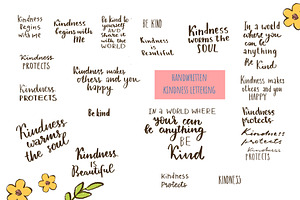 Kindness
Begins
with Me
Kindness
Begins with Me
Be kind to
yourself
AND
share it
with the
WORLD
BE KIND
Kindness
is
Beautiful
Kindness
warms the
SOUL
In a world
where
you can be
anything
Be
Kind
Kindness
PROTECTS
Kindness makes
others and you
happy
HANDWRITTEN
KINDNESS LETTERING
Kindness makes
others and you
HAPPY
KINDNESS
PROTECTS
Be kind
IN A WORLD WHERE
you can
be anything
BE
Kind
Kindness
protects
Kindness
protects
KINDNESS
PROTECTS
Kindness
warms
the soul
Kindness
is
Beautiful
Kindness
Protects
KINDNESS